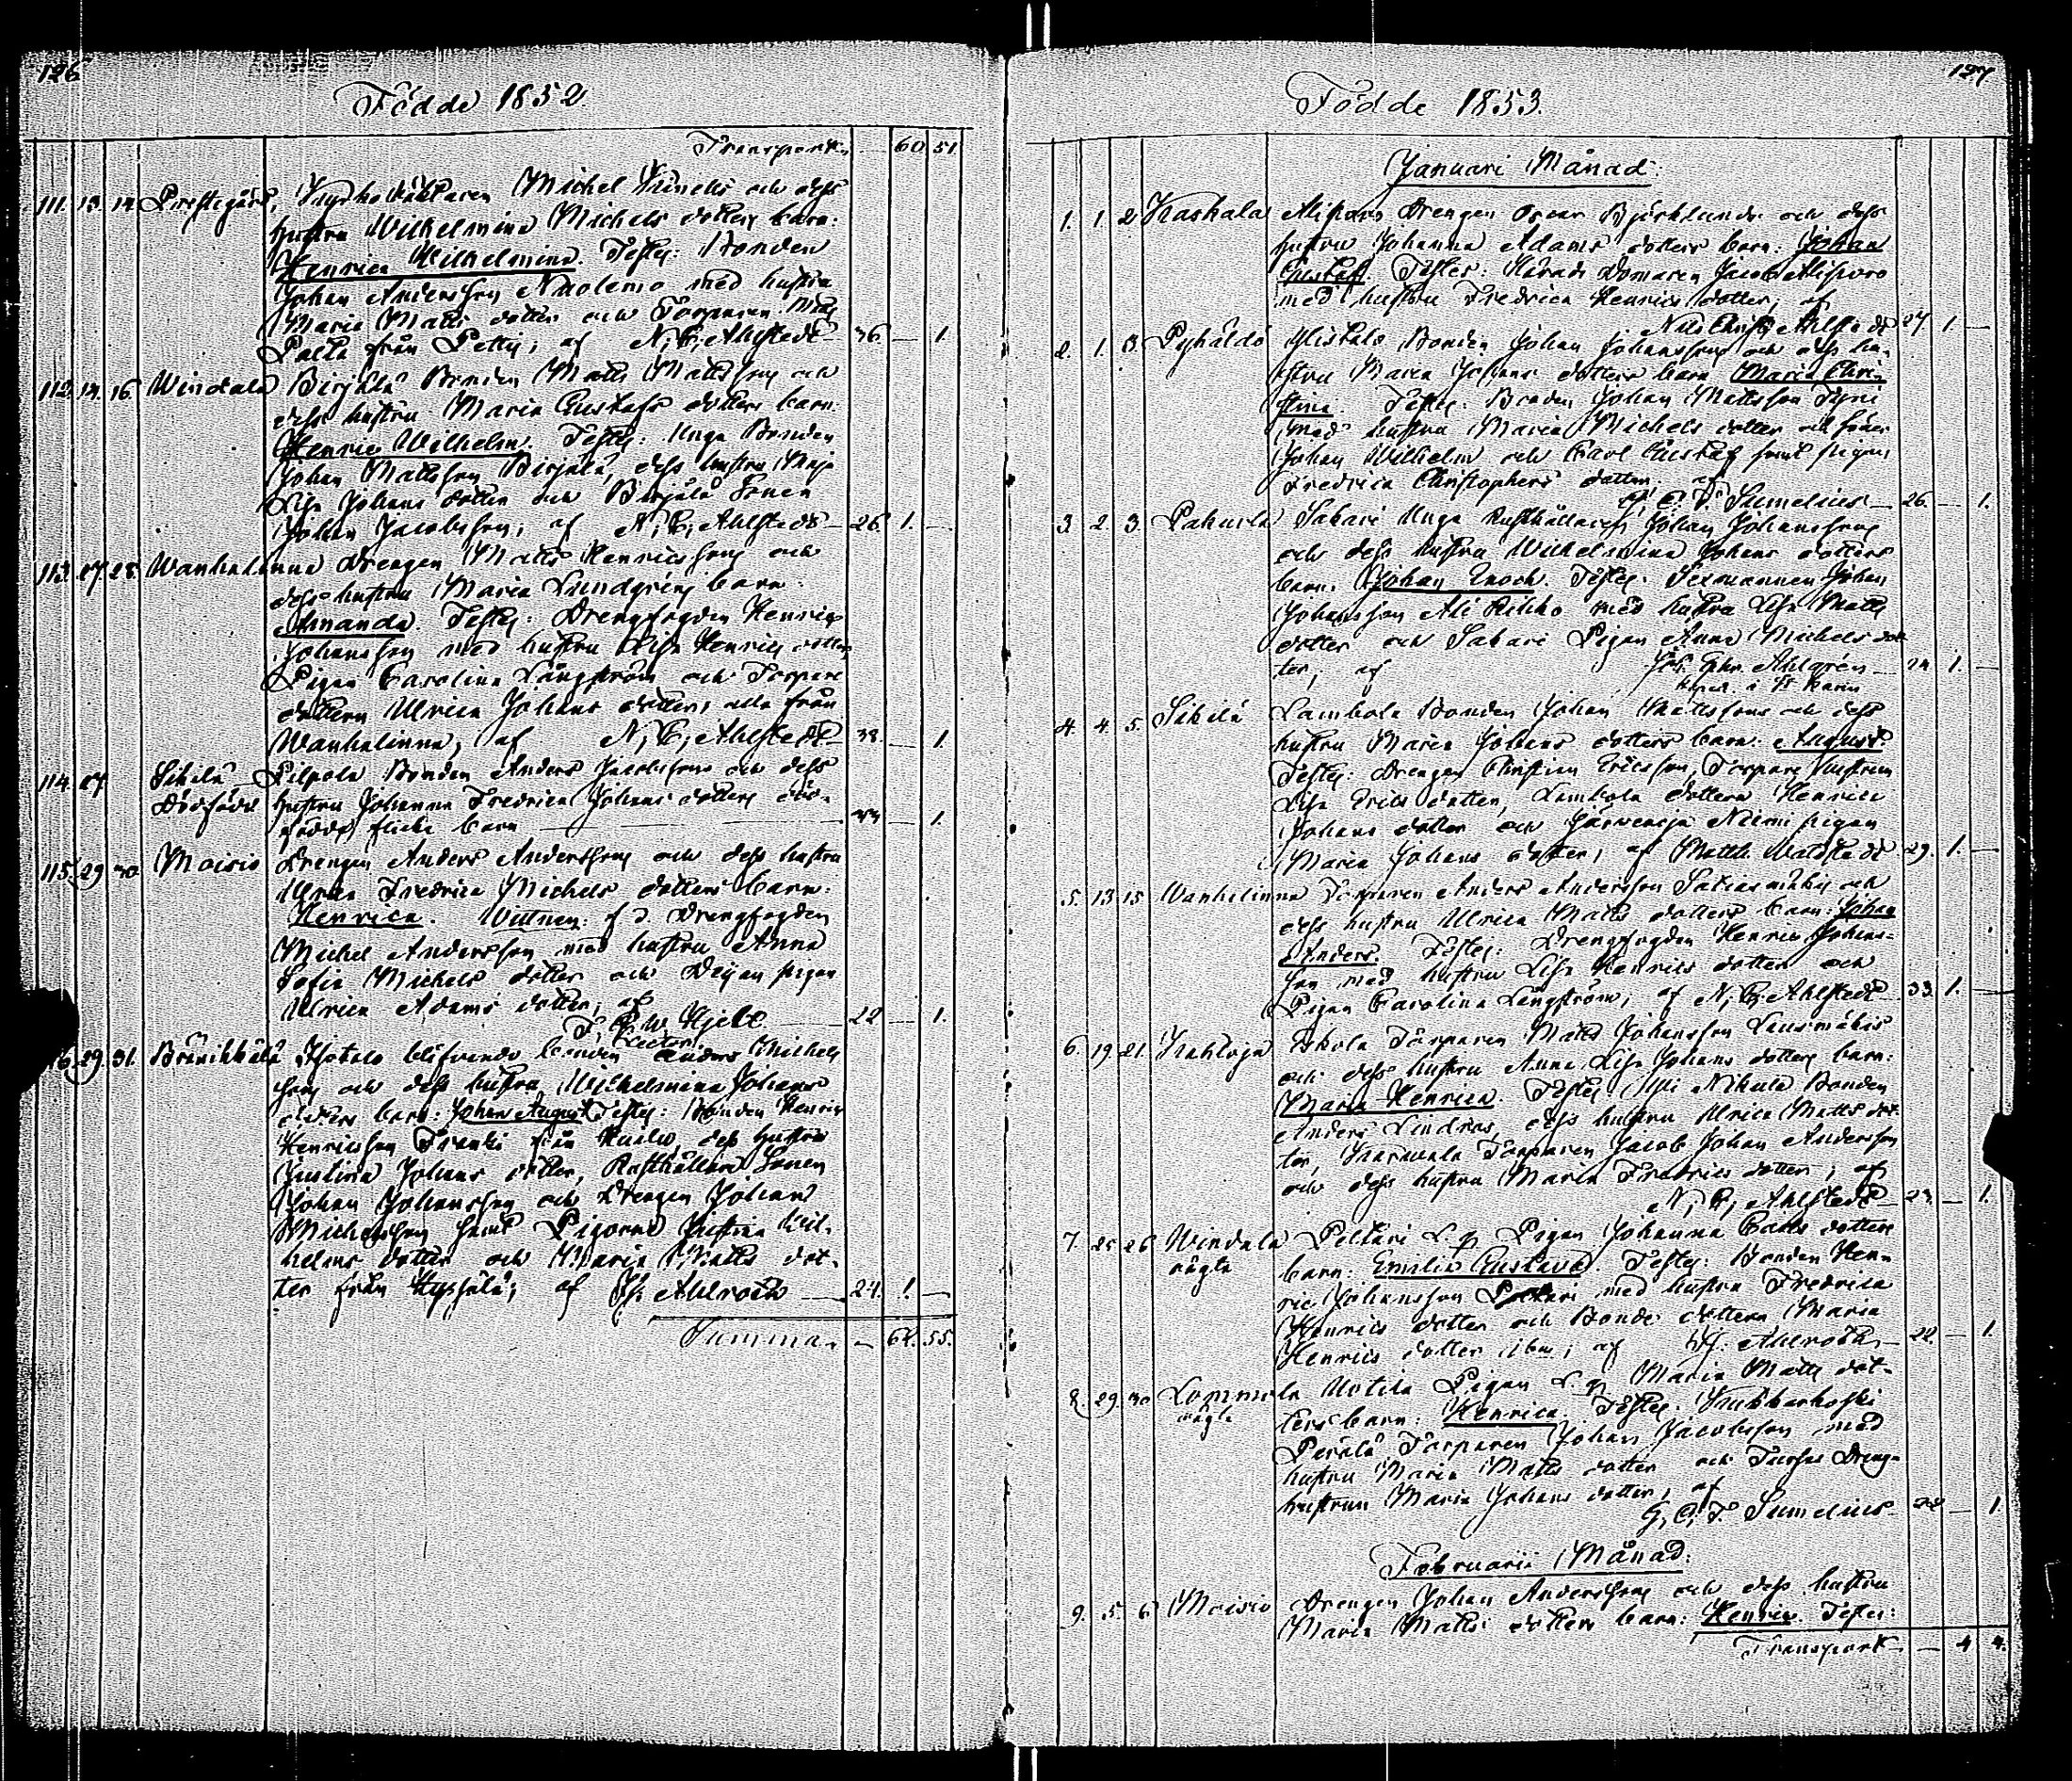 126
Födde 1852
Transport 60 51
111. 13. 14. Prestgård, Kyrkoväktaren Michel och dess
hustru Wilhelmina Michels dotters barn:
Henrica Wilhelmina. Testes: Bonden
Johan Andersson Nuolemo med hustru
Maria Matts dotter och Torparen Matts
från; af N, C, Ahlstedt 36. — 1.
112. 14. 16. Windala Birjälä Bonden Matts Mattsson och
dess hustru Maria Gustafs dotters barn
Henric Wilhelm. Testes: Unga Bonden
Johan Mattsson Birjälä, dess hustru Maja
Lisa Johans dotter och Birjälä Sonen
Johan Jacobsson; af N, C, Ahlstedt 26 1. —
113. 27 28. Wanhalinna Drengen Matts Henricsson och
dess hustru Maria Lundgrén barn:
Amanda. Testes: Drengfogden Henric
Johansson med hustru Lisa Henrics dotter,
Pigan Carolina Långström och Torpare
dottern Ulrica Johans dotter, alla från
Wanhalinna, af N, C, Ahlstedt 38. — 1.
114. 27 Sikilä Pilpola Bonden Anders Jacobsson och dess
Dödfödd hustru Johanna Fredrica Johans dotters död-
födda flicke barn — 1.
115. 29 30 Moisio Drengen Anders Andersson och dess hustru
Ulrica Fredrica Michels dotters barn:
Henrica. Wittnen: f d. Drengfogden
Michel Andersson med hustru Anna
Sofia Michels dotter och pigan
Ulrica Adams dotter; af
Hjelt 22 — 1.
116. 29. 31. Bränikkälä Isotalo blifvande bonden Anders Michels
son och dess hustru Wilhelmina Johans
dotters barn: Johan August Testes: Bonden Henric
Henricsson från dess hustru
Justina Johans dotter, Rusthållare Sonen
Johan Johansson och Drengen Johan
Michelsson samt Pigorna Justina Wil-
helms dotter och Maria Matts dot-
ter från; af Ahlroth 24. 1. —
Summa — 61. 55.
127
Födde 1853.
Januari Månad.
1. 1 2 Kaskala Alisparo Drengen Oscar Björklunds och dess
hustru Johanna Adams dotters barn: Johan
Gustaf. Testes: Härads Domaren Jacob Alisparo
med hustru Fredrica Henrics dotter; af
Nils Christ. Ahlstedt 27 1. —
2. 1. 3. Pyhältö Ylistalo Bonden Johan Johansson och dess hu-
stru Maria Johans dotters barn Maria Chri-
stina. Testes: Bonden Johan Mattsson
med hustru Maria Michels dotter och söner
Johan Wilhelm och Carl Gustaf samt pigan
Fredrica Christophers dotter; af
G. C. F. Sumelius 26 — 1.
3 2. 3. Pahurla Sakari Unga Rusthållaren Johan Johansson
och dess hustru Wilhelmina Johans dotters
barn: Johan Enoch. Testes: Sexmannen Johan
Johansson Ali Rihko med hustru Lisa Matts
dotter och Sakari Pigan Anna Michels dot
ter; af Joh. Ahlgrén 24 1. —
i St Karin
4. 4 5. Sikilä Lambola Bonden Johan Mattsson och dess
hustru Maria Johans dotters barn: August.
Testes: Drengen Christian Ericsson, Torpare hustrun
Lisa Erics dotter, Lambola dottern Henrica
Johans dotter och Järvenoja Niemi pigan
Maria Johans dotter, af Matth. Waldstedt 29. 1. —
5. 13 15. Wanhalinna Torparen Anders Andersson och
dess hustru Ulrica Matts dotters barn: Johan
Anders. Testes: Drengfogden Henric Johans-
son med hustru Lisa Henrics dotter och
Pigan Carolina Långström, af N, C, Ahlstedt 33. 1. —
6. 19. 21. Eskola Torparen Matts Johansson
och dess hustru Anna Lisa Johans dotters barn:
Maria Henrica. Testes: Yli Nikula Bonden
Anders Lindros, dess hustru Ulrica Matts dot
ter, Torparen Jacob Johan Andersson
och dess hustru Maria Fredrics dotter; af
N, C, Ahlstedt — 1.
7. 25 26 Windala Peltari L. p Pigan Johanna Carls dotters
oägta barn: Emilia Gustava. Testes: Bonden Hen-
ric Johansson Peltari med hustru Fredrica
Henrics dotter och Bonde dottern Maria
Henrics dotter ibm; af Ahlroth 22. — 1.
8. 29. 30 Lommola Uotila Pigan L. p Maria Matts dot-
oägta ters barn: Henrica. Testes:
Perälä Torparen Johan Jacobsson med
hustru Maria Matts dotter och Dreng-
hustrun Maria Johans dotter, af
G, C, F. Sumelius 22 — 1.
Februarii Månad.
9. 5. 6 Moisio Drengen Johan Andersson och dess hustru
Maria Matts dotters barn: Henric. Testes:
Transport — 4 4.